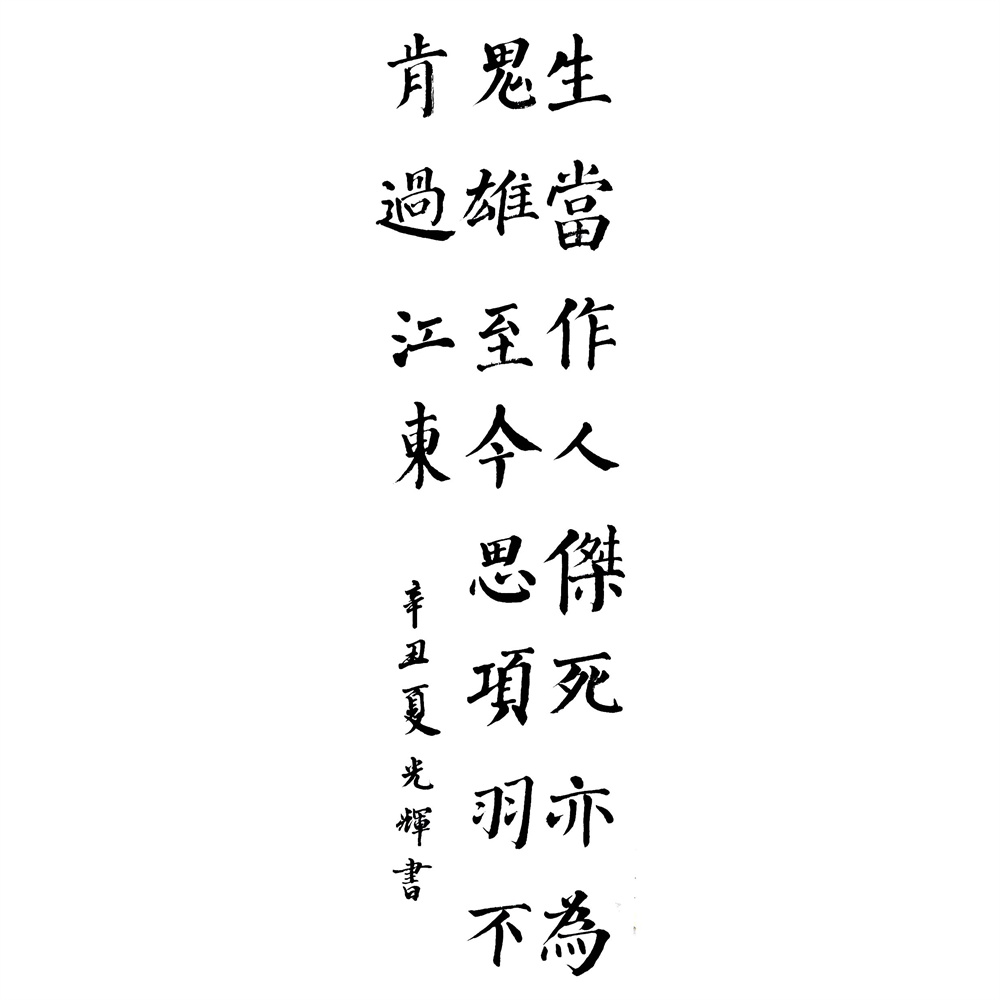 生當作人傑死亦為
鬼雄至今思項羽不
肯過江東
辛丑夏光輝書